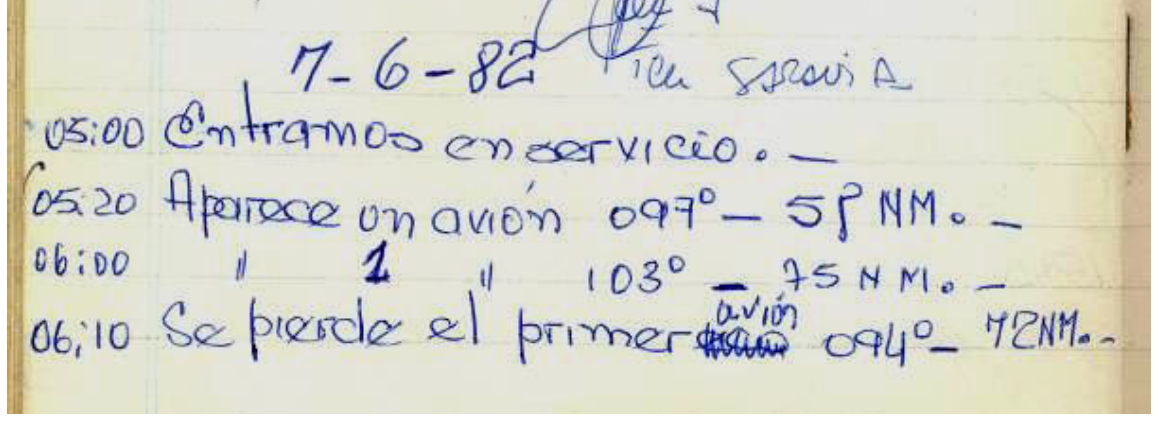 7-6-82
05:00 Entramos en servicio. —
05:20 Aparece un avión 097° — 58 NM. —
06:00 " 1 " 103° — 75 NM. —
06:10 Se pierde el primer avión 094° — 72NM. -